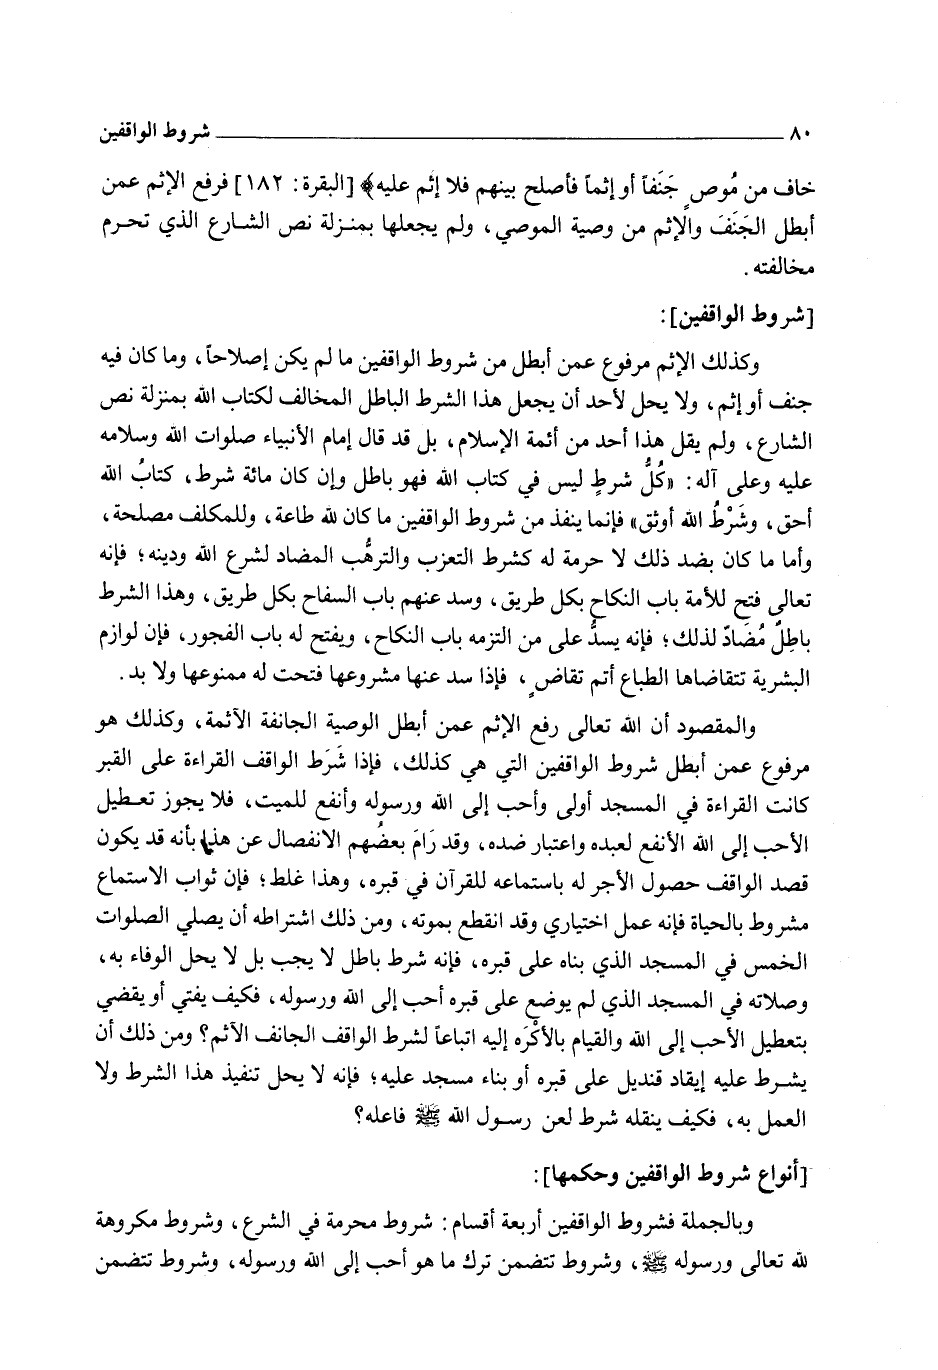 ٨٠ شروط الواقفين
خاف من مُوصٍ جَنَفاً أو إثماً فأصلح بينهم فلا إثم عليه﴾ [البقرة: ١٨٢] فرفع الإثم عمن
أبطل الجَنَفَ والإثم من وصية الموصي، ولم يجعلها بمنزلة نص الشارع الذي تحرم
مخالفته.
[شروط الواقفين]:
وكذلك الإثم مرفوع عمن أبطل من شروط الواقفين ما لم يكن إصلاحاً، وما كان فيه
جنف أو إثم، ولا يحل لأحد أن يجعل هذا الشرط الباطل المخالف لكتاب الله بمنزلة نص
الشارع، ولم يقل هذا أحد من أئمة الإسلام، بل قد قال إمام الأنبياء صلوات الله وسلامه
عليه وعلى آله: «كُلُّ شرطٍ ليس في كتاب الله فهو باطل وإن كان مائة شرط، كتابُ الله
أحق، وشَرْطُ الله أوثق» فإنما ينفذ من شروط الواقفين ما كان لله طاعة، وللمكلف مصلحة،
وأما ما كان بضد ذلك لا حرمة له كشرط التعزب والترهُّب المضاد لشرع الله ودينه؛ فإنه
تعالى فتح للأمة باب النكاح بكل طريق، وسد عنهم باب السفاح بكل طريق، وهذا الشرط
باطِلٌ مُضَادٌ لذلك؛ فإنه يسدُّ على من التزمه باب النكاح، ويفتح له باب الفجور، فإن لوازم
البشرية تتقاضاها الطباع أتم تقاضٍ، فإذا سد عنها مشروعها فتحت له ممنوعها ولا بد.
والمقصود أن الله تعالى رفع الإثم عمن أبطل الوصية الجانفة الآثمة، وكذلك هو
مرفوع عمن أبطل شروط الواقفين التي هي كذلك، فإذا شَرَط الواقف القراءة على القبر
كانت القراءة في المسجد أولى وأحب إلى الله ورسوله وأنفع للميت، فلا يجوز تعطيل
الأحب إلى الله الأنفع لعبده واعتبار ضده، وقد رَامَ بعضُهم الانفصال عن هذا بأنه قد يكون
قصد الواقف حصول الأجر له باستماعه للقرآن في قبره، وهذا غلط؛ فإن ثواب الاستماع
مشروط بالحياة فإنه عمل اختياري وقد انقطع بموته، ومن ذلك اشتراطه أن يصلي الصلوات
الخمس في المسجد الذي بناه على قبره، فإنه شرط باطل لا يجب بل لا يحل الوفاء به،
وصلاته في المسجد الذي لم يوضع على قبره أحب إلى الله ورسوله، فكيف يفتي أو يقضي
بتعطيل الأحب إلى الله والقيام بالأكْرَه إليه اتباعاً لشرط الواقف الجانف الآثم؟ ومن ذلك أن
يشرط عليه إيقاد قنديل على قبره أو بناء مسجد عليه؛ فإنه لا يحل تنفيذ هذا الشرط ولا
العمل به، فكيف ينقله شرط لعن رسول الله ﷺ فاعله؟
[أنواع شروط الواقفين وحكمها]:
وبالجملة فشروط الواقفين أربعة أقسام: شروط محرمة في الشرع، وشروط مكروهة
لله تعالى ورسوله ﷺ، وشروط تتضمن ترك ما هو أحب إلى الله ورسوله، وشروط تتضمن